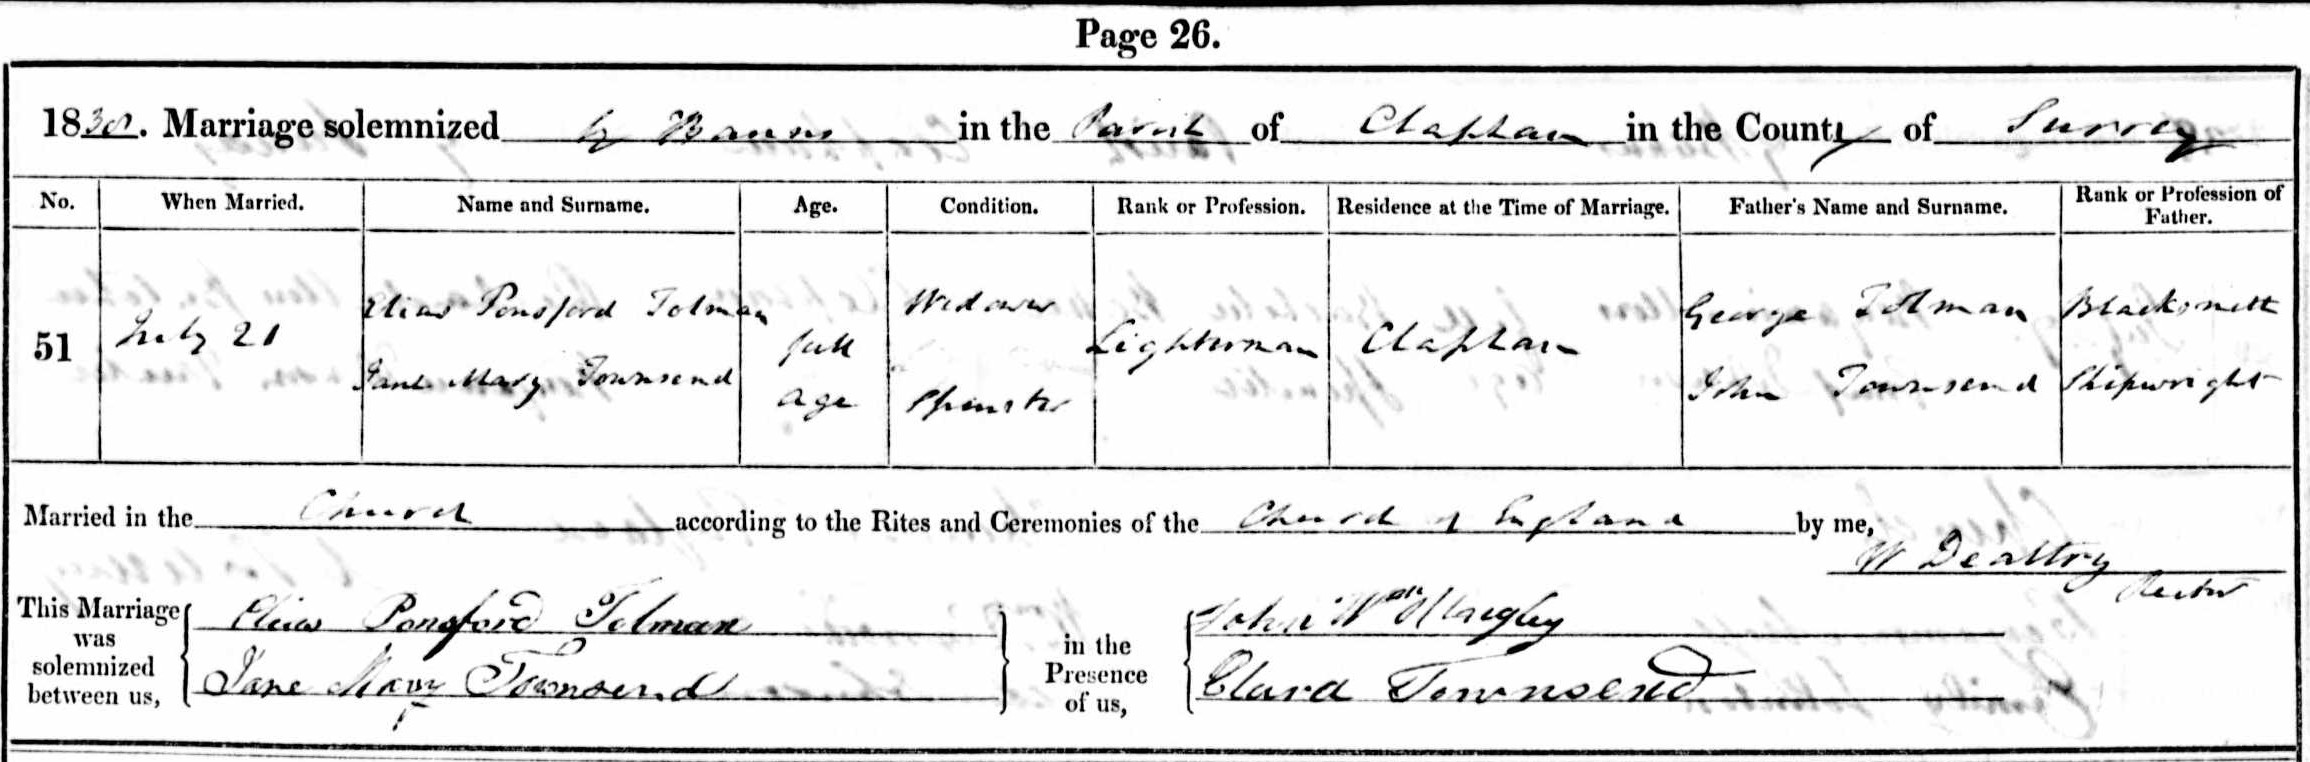 Page 26.
1838. Marriage solemnized by Banns in the Parish of Clapham in the County of Surrey
No. When Married. Name and Surname. Age. Condition. Rank or Profession. Residence at the Time of Marriage. Father's Name and Surname. Rank or Profession of Father.
51 July 21 Elias Ponsford Tolman full Widower Lighterman Clapham George Tolman Blacksmith
Jane Mary Townsend age Spinster John Townsend Shipwright
Married in the Church according to the Rites and Ceremonies of the Church of England by me,
W Dealtry
Rector
This Marriage was solemnized between us, Elias Ponsford Tolman in the Presence of us, John Wm
Jane Mary Townsend Clara Townsend